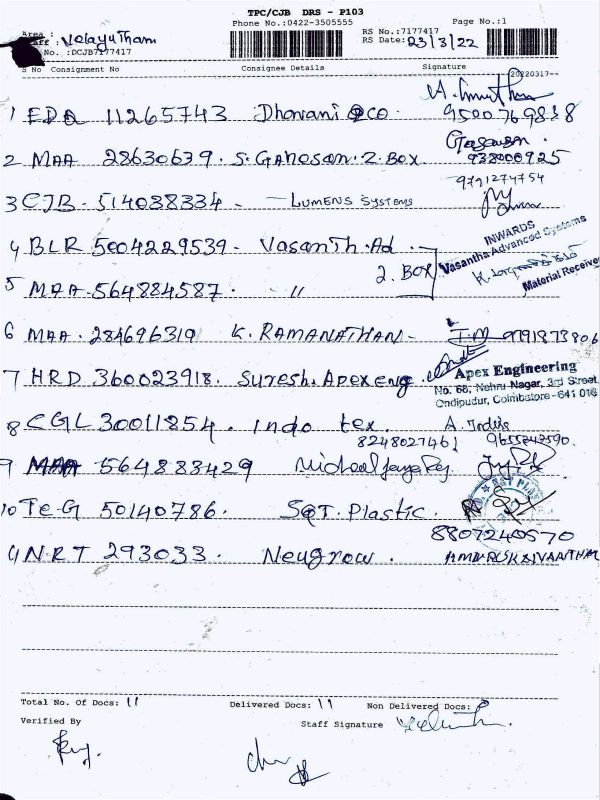 TPC/CJB DRS - P103
Phone No.:0422-3505555
Page No.:1
Area :
Staff : Velayutham
No. :DCJB7177417
RS No.:7177417
RS Date: 23/3/22
S No Consignment No Consignee Details Signature
20220317--
1 EDQ 11265743 Dhorani &co. 9500769838
2 MAA 28630639. S. Ganesan. 2. BOX 938000925
9791274754
3 CJB. 514038334 - LUMENS SYSTEMS
4 BLR 5004229539 - Vasanth. Ad
2. BOX
INWARDS
Vasantha Advanced Systems
Material Received
5 MAA. 564884587. "
6 MAA. 284696319 K. RAMANATHAN - 9791873806
7 HRD 360023918. Suresh. Apex eng.
Apex Engineering
No. 68, Nehru Nagar, 3rd Street,
Ondipudur, Coimbatore - 641 016
8 CGL 30011854. Indo tex.
8248027461 9655242590
9 MAA 564883429
10 TEG 50140786. SQT. Plastic.
8807240570
11 NRT 293033. Neugrow.
Total No. Of Docs: 11 Delivered Docs: 11 Non Delivered Docs:
Verified By Staff Signature